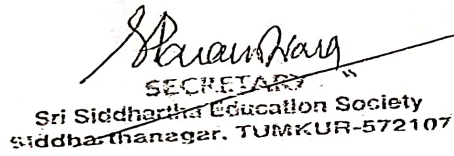 SECRETARY
Sri Siddhartha Education Society
Siddharthanagar, TUMKUR-572107